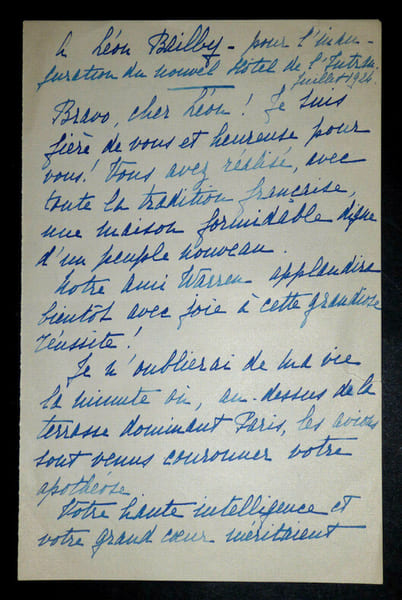 à Léon Bailby - pour l'inau-
guration du nouvel Hôtel de l'Intran.
Juillet 1924.
Bravo, cher Léon ! Je suis
fière de vous et heureuse pour
vous ! Vous avez réalisé, avec
toute la tradition française,
une maison formidable digne
d'un peuple nouveau.
Notre ami Warren applaudira
bientôt avec joie à cette grandiose
réussite !
Je n'oublierai de ma vie
la minute où, au-dessus de la
terrasse dominant Paris, les avions
sont venus couronner votre
apothéose.
Votre haute intelligence et
votre grand cœur méritaient